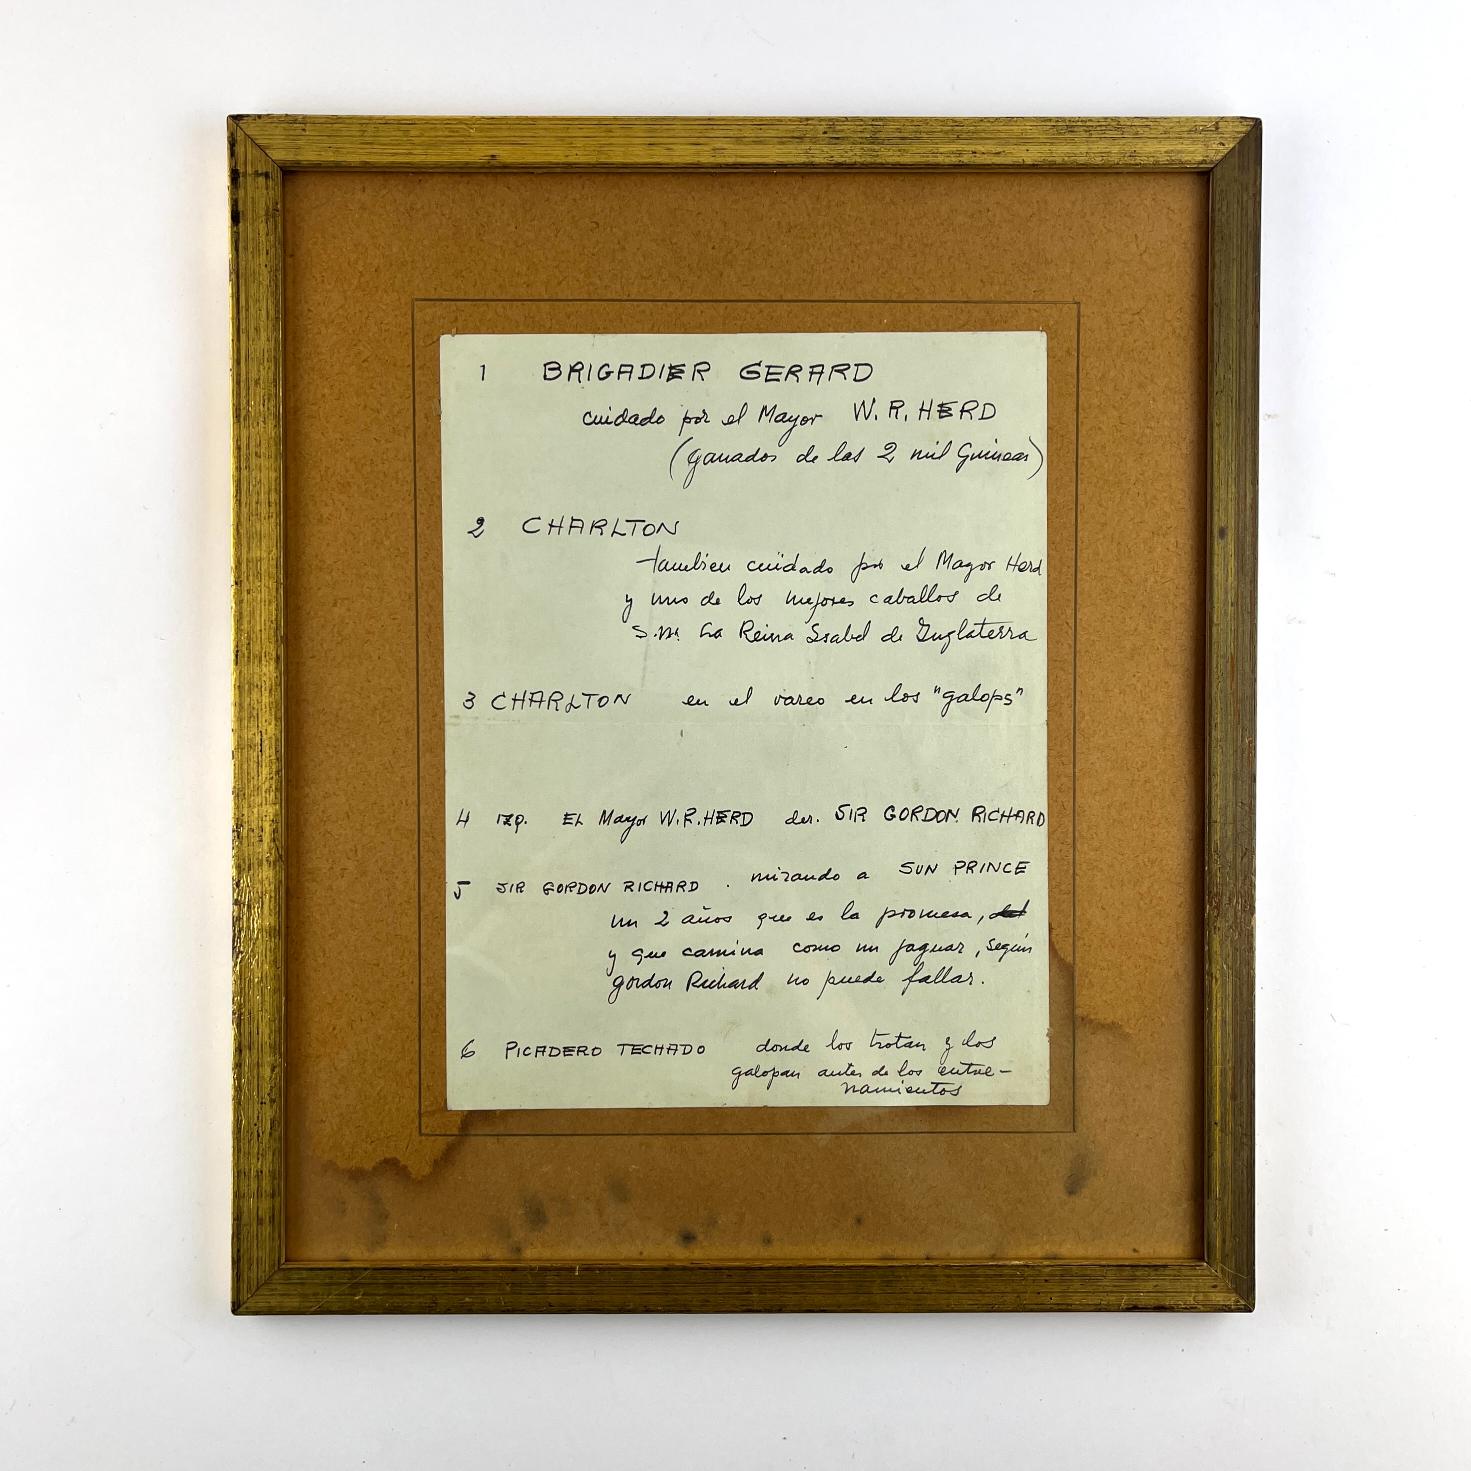 1 BRIGADIER GERARD
cuidado por el Mayor W.R. HERD
(ganador de las 2 mil Guineas)
2 CHARLTON
tambien cuidado por el Mayor Herd
y uno de los mejores caballos de
S.M. La Reina Isabel de Inglaterra
3 CHARLTON en el vareo en los "galops"
4 IZQ. EL Mayor W.R. HERD der. SIR GORDON RICHARD
5 SIR GORDON RICHARD . mirando a SUN PRINCE
un 2 años que es la promesa,
y que camina como un jaguar, según
Gordon Richard no puede fallar.
6 PICADERO TECHADO donde los trotan y los
galopan antes de los entre-
namientos